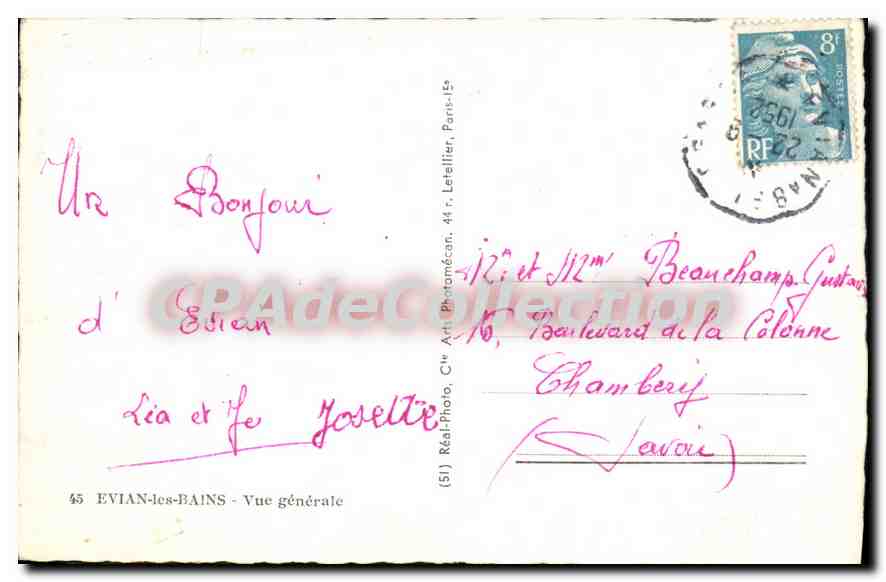 Un Bonjour
d' Evian
Léa et Je Josette
45 EVIAN-les-BAINS - Vue générale
(51) Réal-Photo, Cte Arts Photomécan. 44 r. Letellier, Paris-15e
8F
POSTES
RF
22
1952
Mr et Mme Beauchamp Gustave
16, Boulevard de la Colonne
Chambéry
(Savoie)
CPAdeCollection